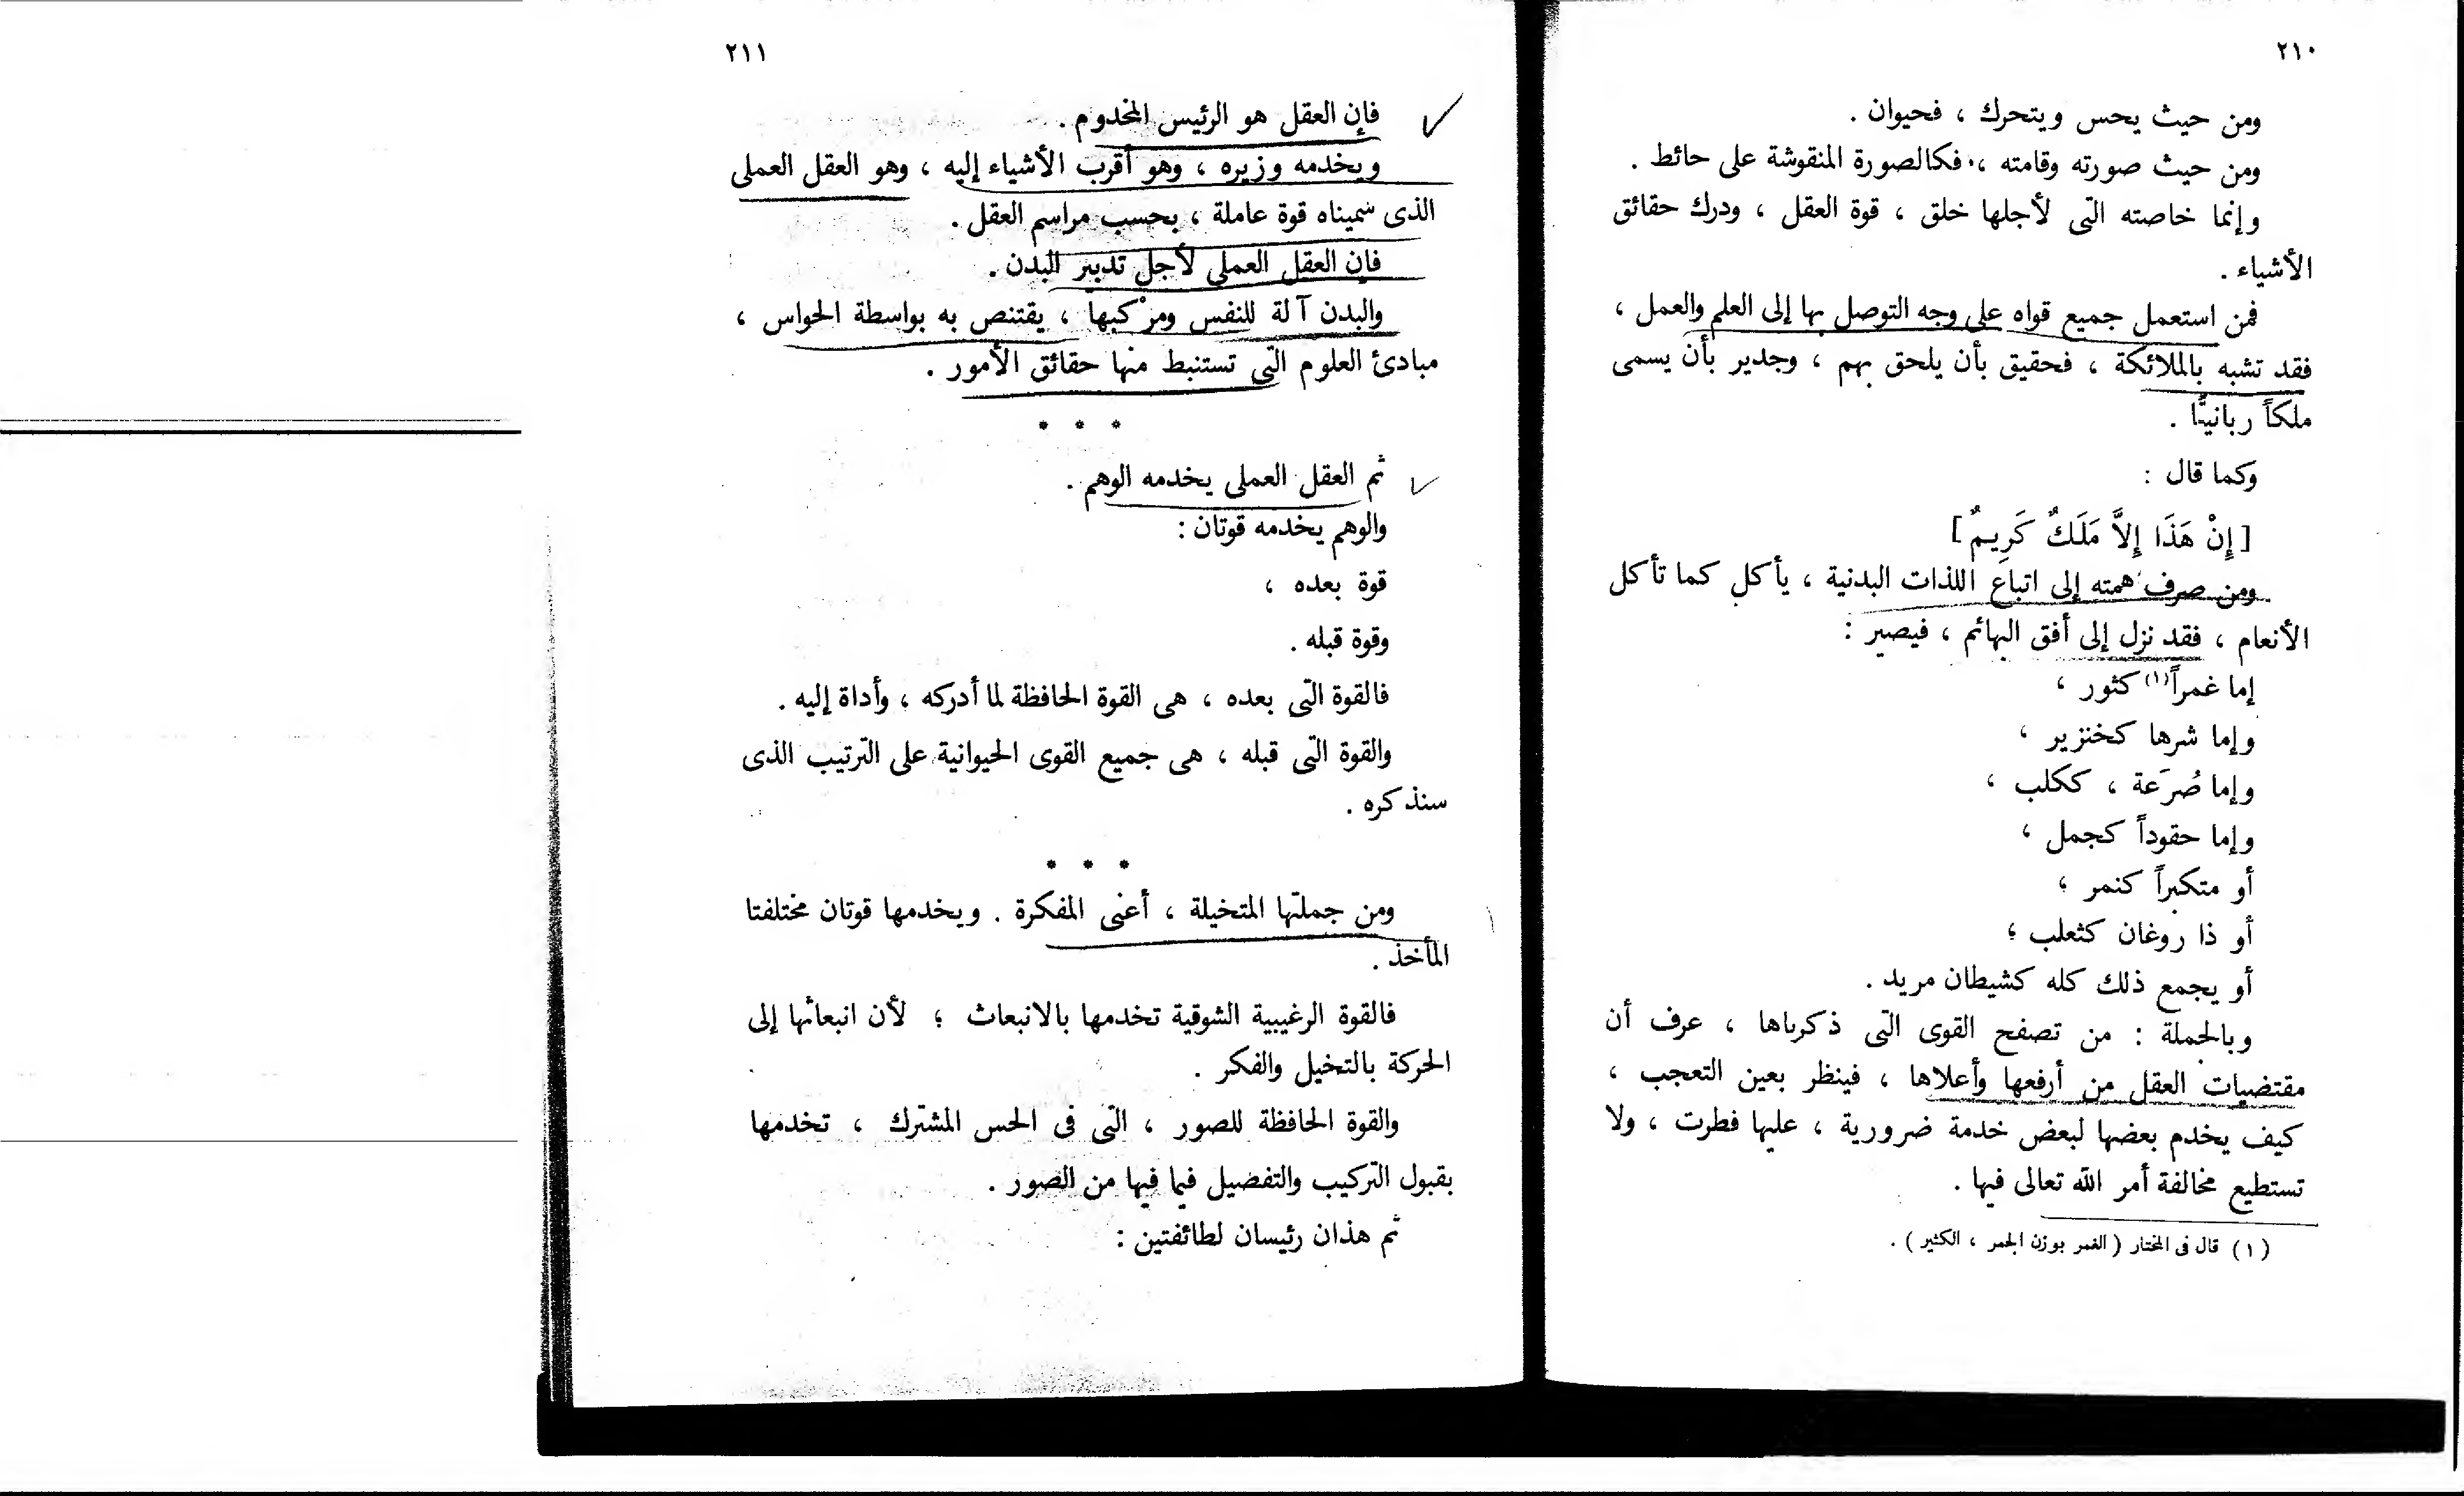 ٢١٠
ومن حيث يحس ويتحرك ، فحيوان .
ومن حيث صورته وقامته ، فكالصورة المنقوشة على حائط .
وإنما خاصته التى لأجلها خلق ، قوة العقل ، ودرك حقائق
الأشياء .
فمن استعمل جميع قواه على وجه التوصل بها إلى العلم والعمل ،
فقد تشبه بالملائكة ، فحقيق بأن يلحق بهم ، وجدير بأن يسمى
ملكاً ربانيًّا .
وكما قال :
[ إِنْ هَذَا إِلاَّ مَلَكٌ كَرِيمٌ ]
ومن صرف همته إلى اتباع اللذات البدنية ، يأكل كما تأكل
الأنعام ، فقد نزل إلى أفق البهائم ، فيصير :
إما غمراً(١) كثور ،
وإما شرها كخنزير ،
وإما ضُرَعة ، ككلب ،
وإما حقوداً كجمل ،
أو متكبراً كنمر ؛
أو ذا روغان كثعلب ؛
أو يجمع ذلك كله كشيطان مريد .
وبالجملة : من تصفح القوى التى ذكرباها ، عرف أن
مقتضيات العقل من أرفعها وأعلاها ، فينظر بعين التعجب ،
كيف يخدم بعضها لبعض خدمة ضرورية ، عليها فطرت ، ولا
تستطيع مخالفة أمر الله تعالى فيها .
( ١ ) قال فى المختار ( الغمر بوزن الجمر ، الكثير ) .
٢١١
فإن العقل هو الرئيس المخدوم .
ويخدمه وزيره ، وهو أقرب الأشياء إليه ، وهو العقل العملى
الذى سميناه قوة عاملة ، بحسب مراسم العقل .
فإن العقل العملى لأجل تدبير البدن .
والبدن آلة للنفس ومرْكبها ، يقتنص به بواسطة الحواس ،
مبادئ العلوم التى تستنبط منها حقائق الأمور .
* * *
ثم العقل العملى يخدمه الوهم .
والوهم يخدمه قوتان :
قوة بعده ،
وقوة قبله .
فالقوة التى بعده ، هى القوة الحافظة لما أدركه ، وأداة إليه .
والقوة التى قبله ، هى جميع القوى الحيوانية على الترتيب الذى
سنذكره .
* * *
ومن جملتها المتخيلة ، أعنى المفكرة . ويخدمها قوتان مختلفتا
المأخذ .
فالقوة الرغيبية الشوقية تخدمها بالانبعاث ؛ لأن انبعاثها إلى
الحركة بالتخيل والفكر .
والقوة الحافظة للصور ، التى فى الحس المشترك ، تخدمها
بقبول التركيب والتفصيل فيما فيها من الصور .
ثم هذان رئيسان لطائفتين :